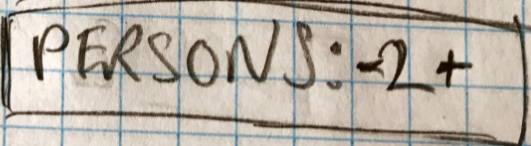 PERSONS: -2+